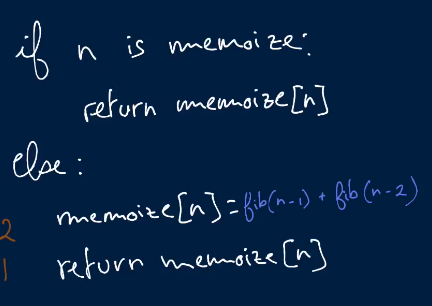 if n is memoize:
return memoize[n]
else:
memoize[n] = fib(n-1) + fib(n-2)
2
return memoize[n]
1